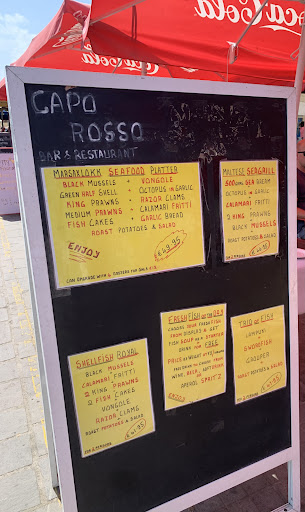 Coca-Cola
Coca-Cola
CAPO
ROSSO
BAR & RESTAURANT
MARSAXLOKK SEAFOOD PLATTER
BLACK MUSSELS + VONGOLE
GREEN HALF SHELL + OCTOPUS IN GARLIC
KING PRAWNS + RAZOR CLAMS
MEDIUM PRAWNS + CALAMARI FRITTI
FISH CAKES + GARLIC BREAD
ROAST POTATOES & SALAD
ENJOY
€49.95
MALTESE SEAGRILL
500GMS SEA BREAM
OCTOPUS IN GARLIC
CALAMARI FRITTI
2 KING PRAWNS
BLACK MUSSELS
ROAST POTATOES & SALAD
FRESH FISH OF THE DAY
CHOOSE YOUR FRESH FISH
FROM DISPLAY & GET
FISH SOUP AS A STARTER
DRINK FOR FREE
WINE, BEER,
APEROL SPRITZ
ENJOY
TRIO OF FISH
LAMPUKI
SWORDFISH
GROUPER
SHELLFISH ROYAL
BLACK MUSSELS
CALAMARI FRITTI
2 KING PRAWNS
2 FISH CAKES
VONGOLE
RAZOR CLAMS
ROAST POTATOES & SALAD